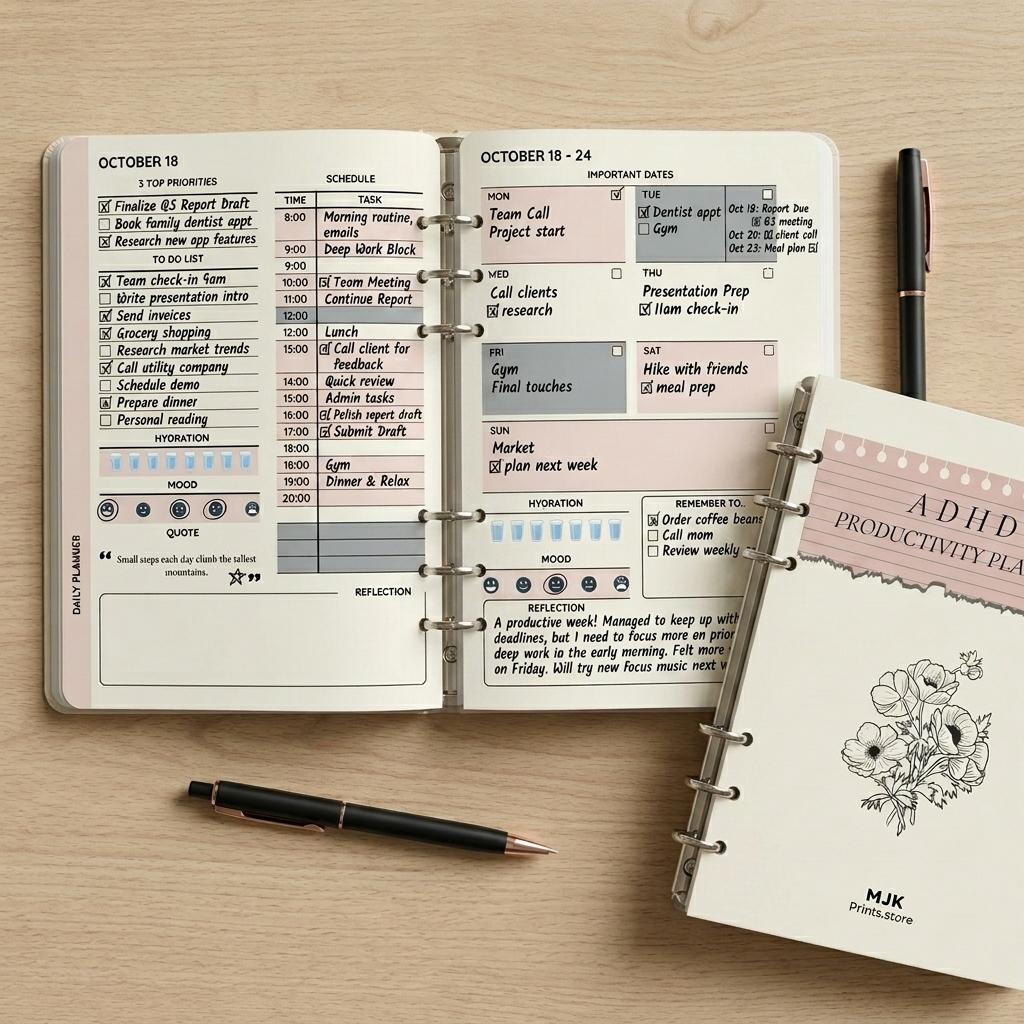 OCTOBER 18
3 TOP PRIORITIES
Finalize @S Report Draft
Book family dentist appt
Research new app features
TO DO LIST
Team check-in 9am
Write presentation intro
Send inveices
Grocery shopping
Research market trends
Call utility company
Schedule demo
Prepare dinner
Personal reading
HYORATION
MOOD
QUOTE
“ Small steps each day climb the tallest
mountains. ”
DAILY PLANNER
SCHEDULE
TIME TASK
8:00 Morning routine,
emails
9:00 Deep Work Block
9:00
10:00 Team Meeting
11:00 Continue Report
12:00
12:00 Lunch
15:00 Call client for
feedback
14:00 Quick review
15:00 Admin tasks
16:00 Pelish repert draft
17:00 Submit Draft
18:00
16:00 Gym
19:00 Dinner & Relax
20:00
REFLECTION
OCTOBER 18 - 24
IMPORTANT DATES
MON
Team Call
Project start
TUE
Dentist appt
Gym
Oct 18: Raport Due
63 meeting
Oct 20: client call
Oct 23: Meal plan
WED
Call clients
research
THU
Presentation Prep
11am check-in
FRI
Gym
Final touches
SAT
Hike with friends
meal prep
SUN
Market
plan next week
HYORATION
MOOD
REMEMBER TO..
Order coffee beans
Call mom
Review weekly
REFLECTION
A productive week! Managed to keep up with
deadlines, but I need to focus more en prior
deep work in the early morning. Felt more
on Friday. Will try new focus music next w
ADHD
PRODUCTIVITY PLA
MJK
Prints.store